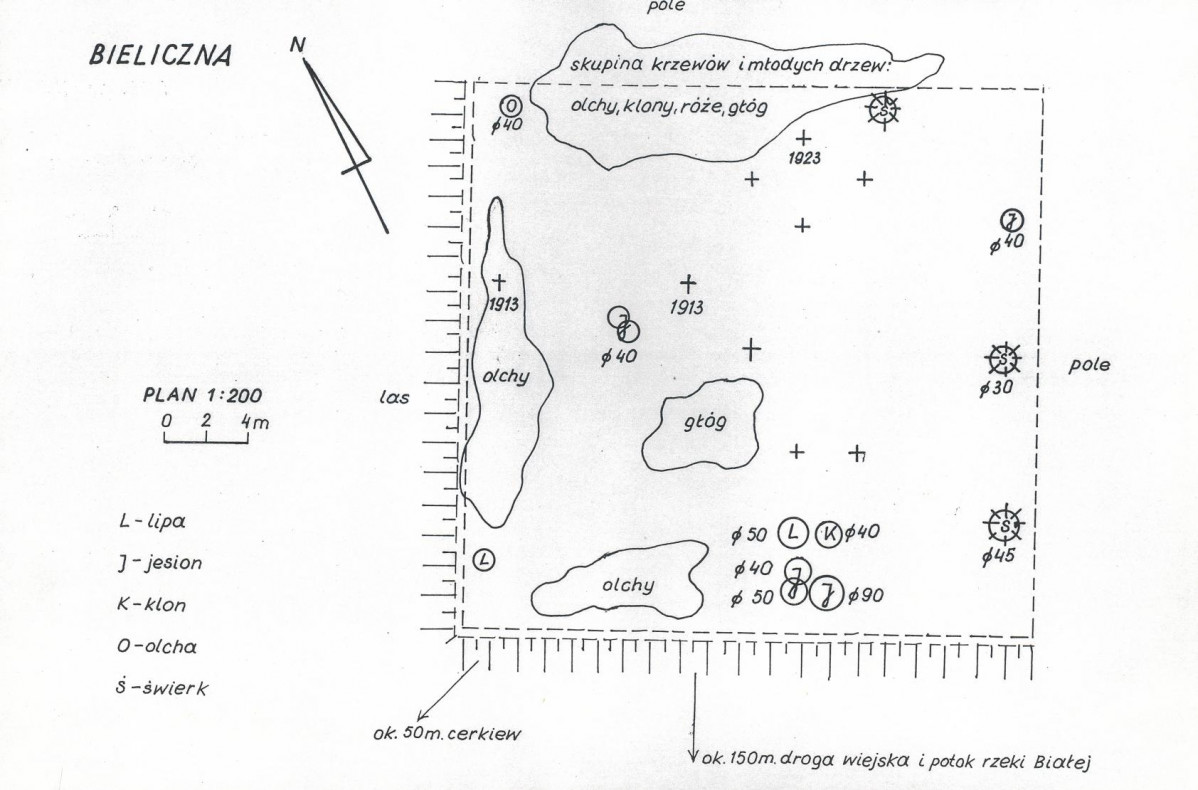 pole
BIELICZNA
N
skupina krzewów i młodych drzew:
olchy, klony, róże, głóg
O
ϕ40
Ś
1923
J
ϕ40
1913
1913
J
J
ϕ40
olchy
Ś
ϕ30
pole
PLAN 1:200
0 2 4m
las
głóg
L - lipa
J - jesion
K - klon
O - olcha
Ś - świerk
ϕ50 L K ϕ40
Ś
ϕ45
L
olchy
ϕ40 J
ϕ50 J J ϕ90
ok. 50m. cerkiew
ok. 150m. droga wiejska i potok rzeki Białej